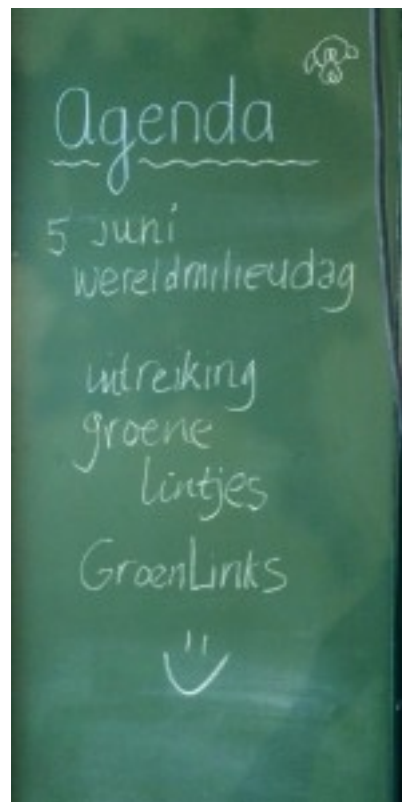 Agenda
5 juni
wereldmilieudag
uitreiking
groene
lintjes
GroenLinks